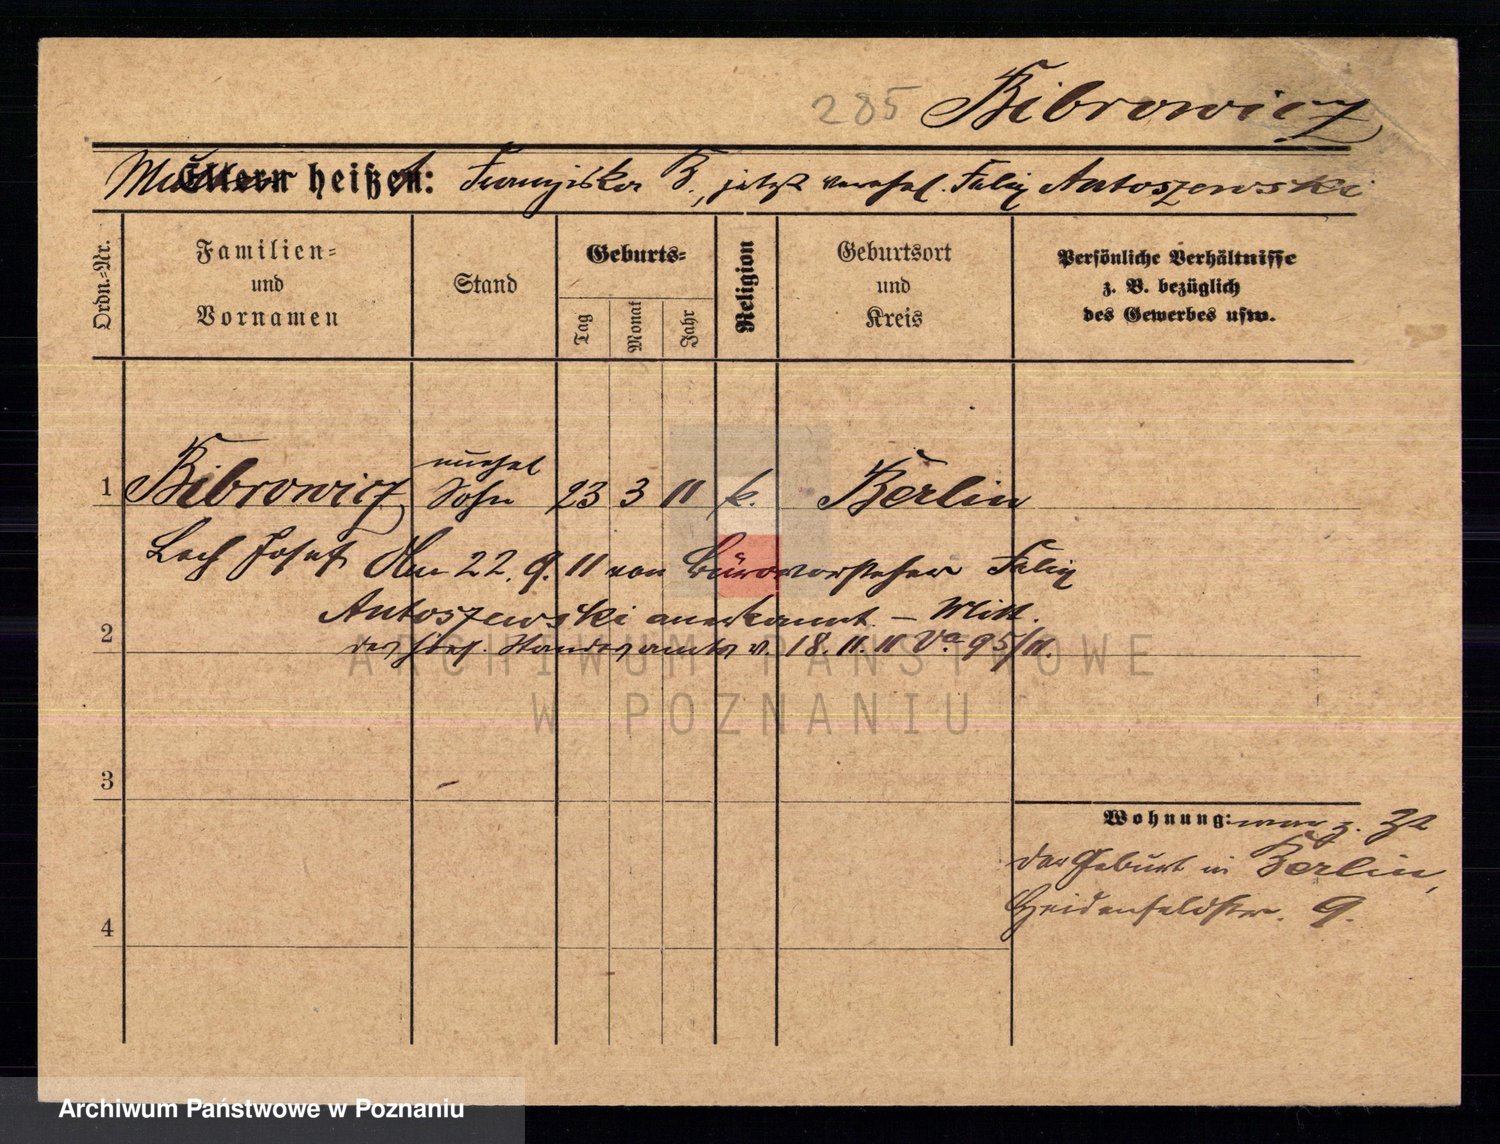 285 Bibrowicz
Mutter heißt: Franziska B., jetzt verehel. Felix Antoszewski
Ordn.=Nr.
Familien=
und
Vornamen
Stand
Geburts=
Tag
Monat
Jahr
Religion
Geburtsort
und
Kreis
Persönliche Verhältnisse
z. B. bezüglich
des Gewerbes usw.
unehel
1 Bibrowicz Sohn 23 3 11 k. Berlin
Lech Josef Am 22. 9. 11 von Bürovorsteher Felix
Antoszewski anerkannt. – Mitt.
2
des hies. Standesamts v. 18. 11. 11 Va 95/11.
ARCHIWUM PAŃSTWOWE
W POZNANIU
3
Wohnung: war z. Zt
der Geburt in Berlin,
Heidenfeldstr. 9.
4
Archiwum Państwowe w Poznaniu